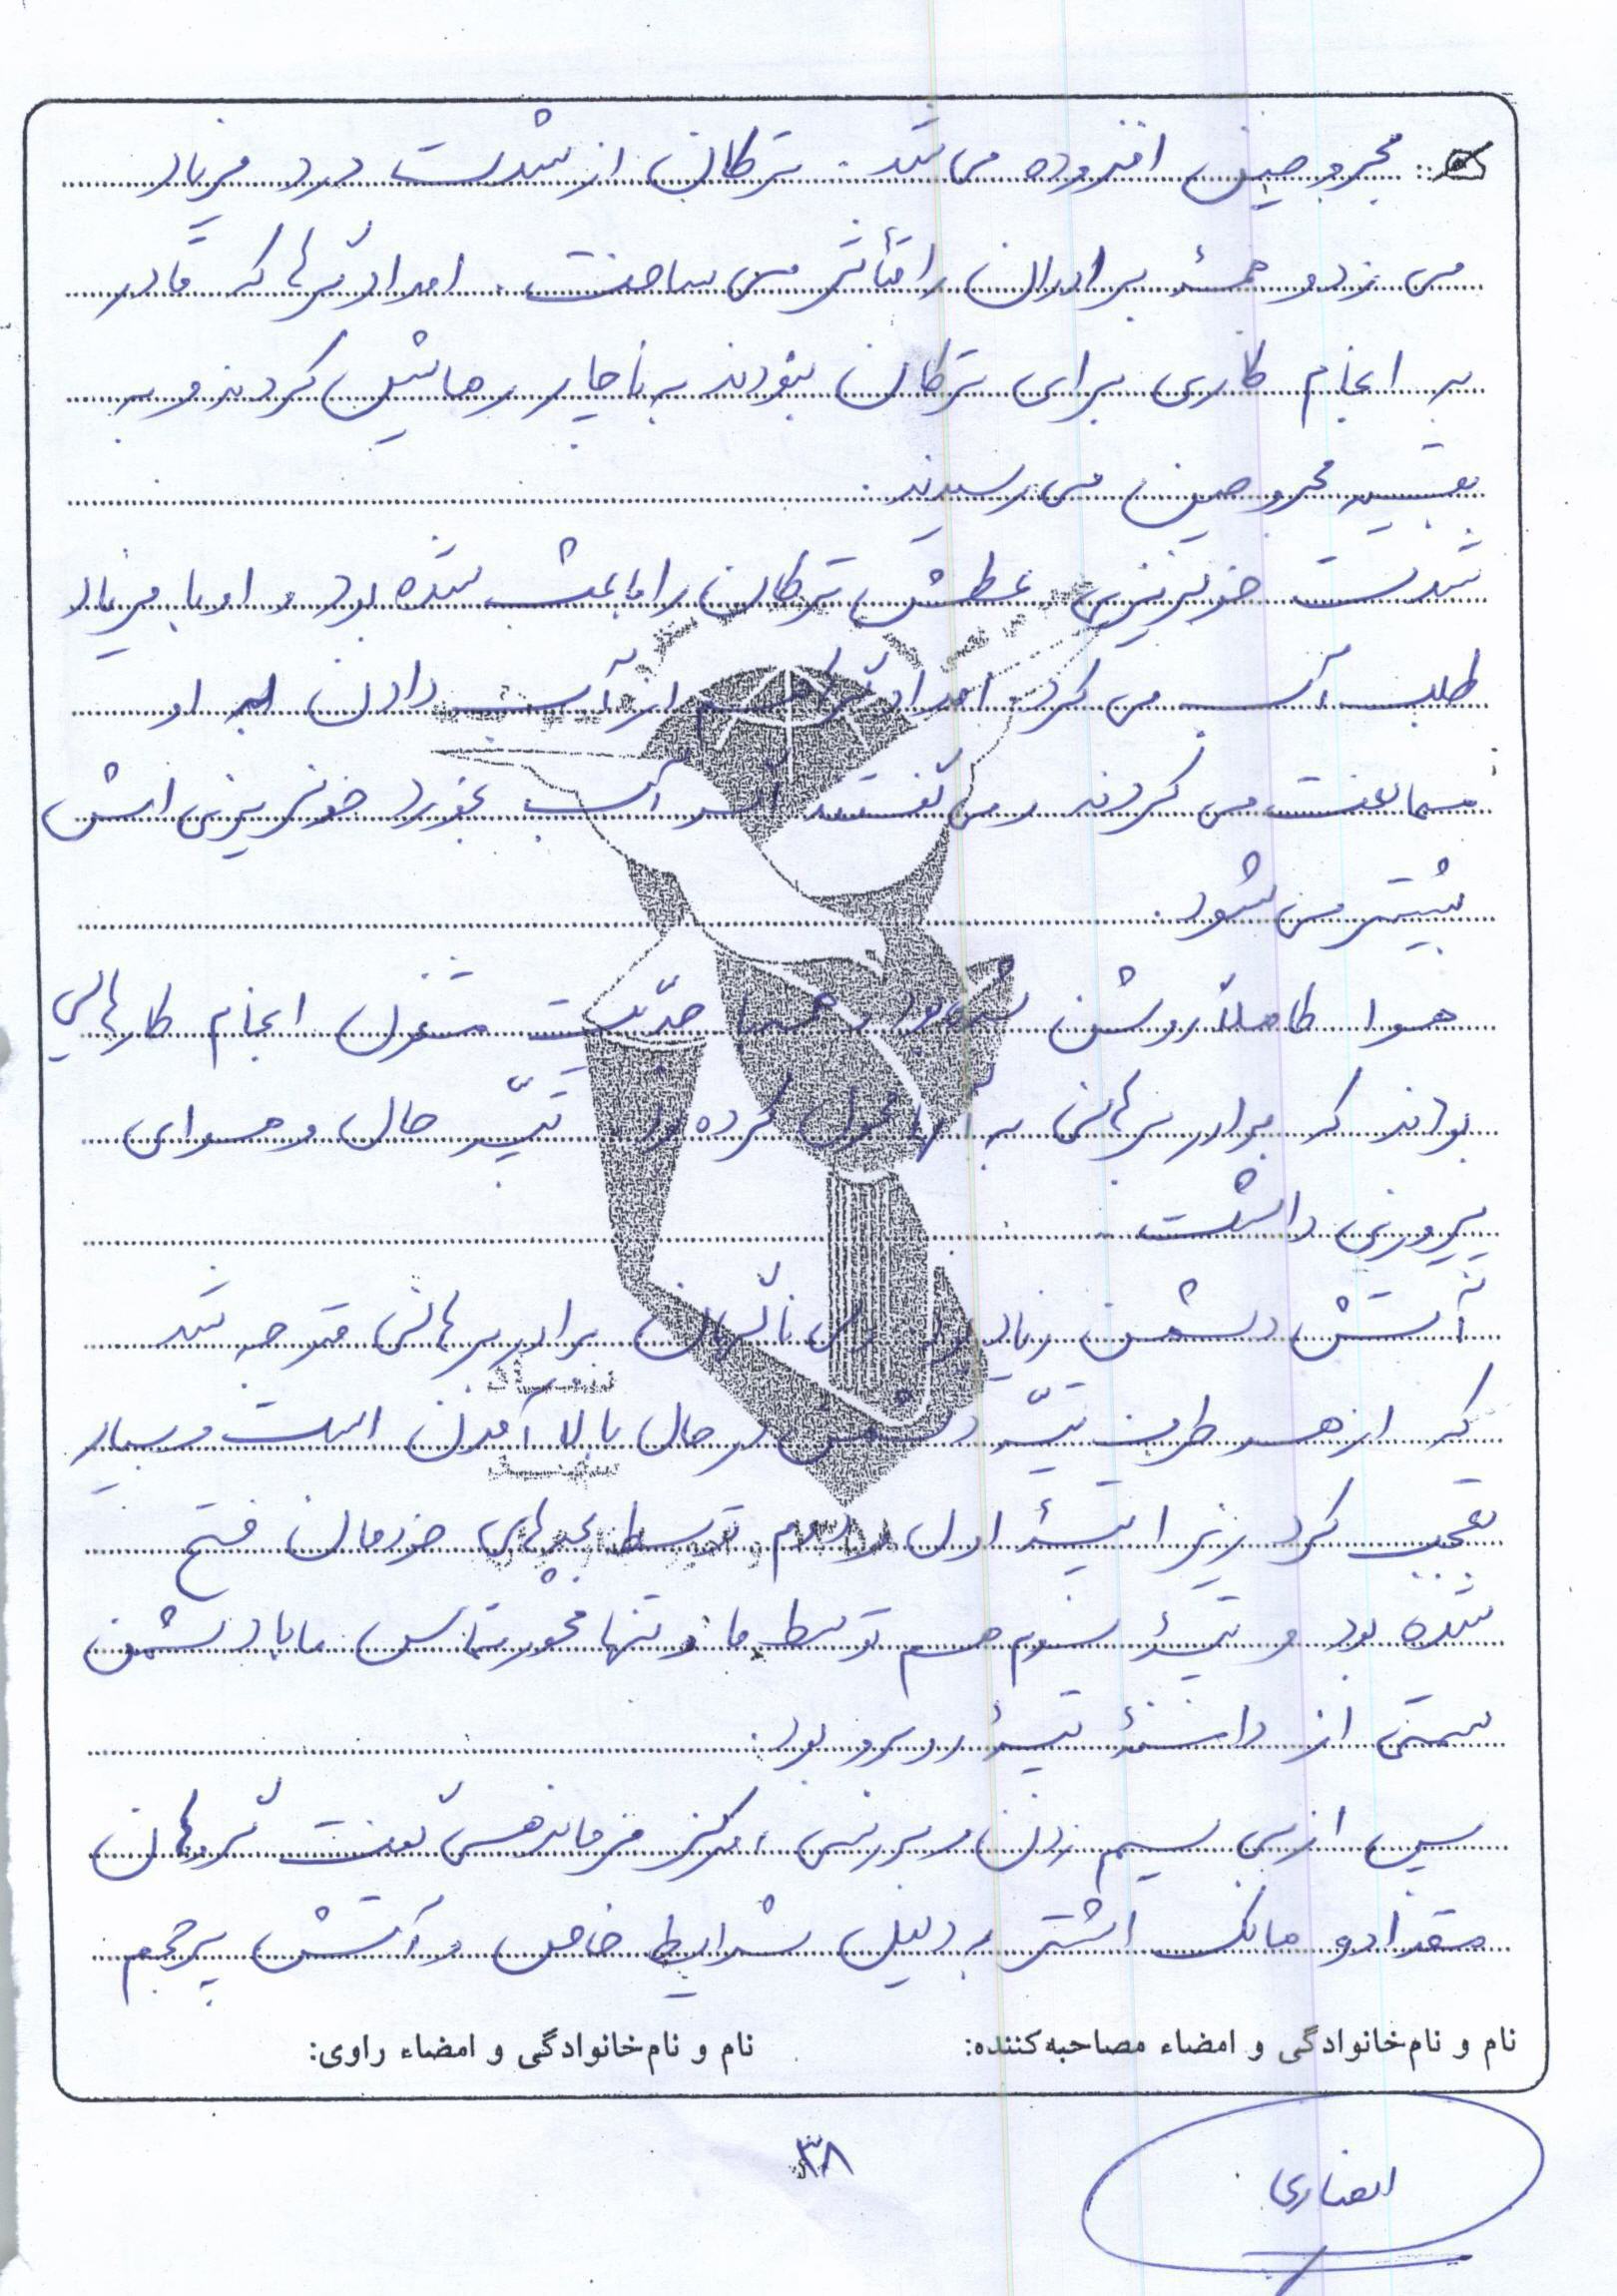 مجروحین افزوده می شد. ترکان از شدت درد فریاد
می زد و همهٔ برادران را متأثر می ساخت. امدادگرها که قادر
به انجام کاری برای ترکان نبودند به ناچار رهایش کردند و به
بقیه مجروحین می رسیدند.
شدت خونریزی عطش ترکان را باعث شده بود و او با فریاد
طلب آب می کرد امدادگرها هم از آب دادن به او
ممانعت می کردند و می گفتند اگر آب بخورد خونریزی اش
بیشتر می شود.
هوا کاملاً روشن شده بود و همه با جدّیت مشغول انجام کارهایی
بودند که برادر برهانی به آنها محول کرده بود. تپّه حال و هوای
پیروزی داشت.
آتش دشمن زیاد بود ولی ناگهان برادر برهانی متوجه شد
که از هر طرف تپّه دشمن در حال بالا آمدن است و بسیار
تعجب کرد زیرا تپهٔ اول و دوم توسط بچه های خودمان فتح
شده بود و تپهٔ سوم هم توسط ما و تنها محور تماس ما با دشمن
سمتی از دامنهٔ تپهٔ روبرو بود.
پس از بی سیم زدن و بررسی، مرکز فرماندهی گفت گروهان
مقداد و مالک اشتر به دلیل شرایط خاص و آتش پرحجم
نام و نام خانوادگی و امضاء مصاحبه کننده: نام و نام خانوادگی و امضاء راوی:
۳۸
انصاری